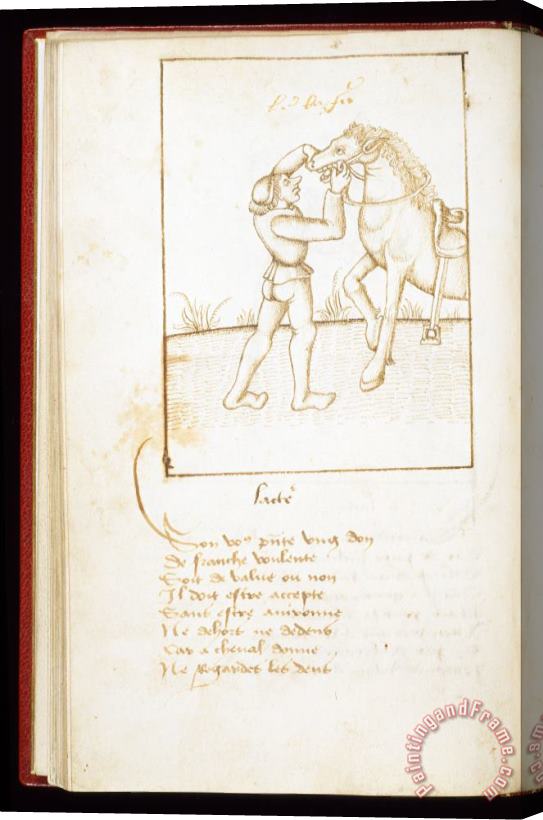 lacte
Son vo9 pnte ung don
De franche voulente
Soit de value ou non
Il doit estre accepte
Sans estre
Ne dehors ne dedens
Car a cheval donne
Ne regardes les dens
PaintingandFrame.com